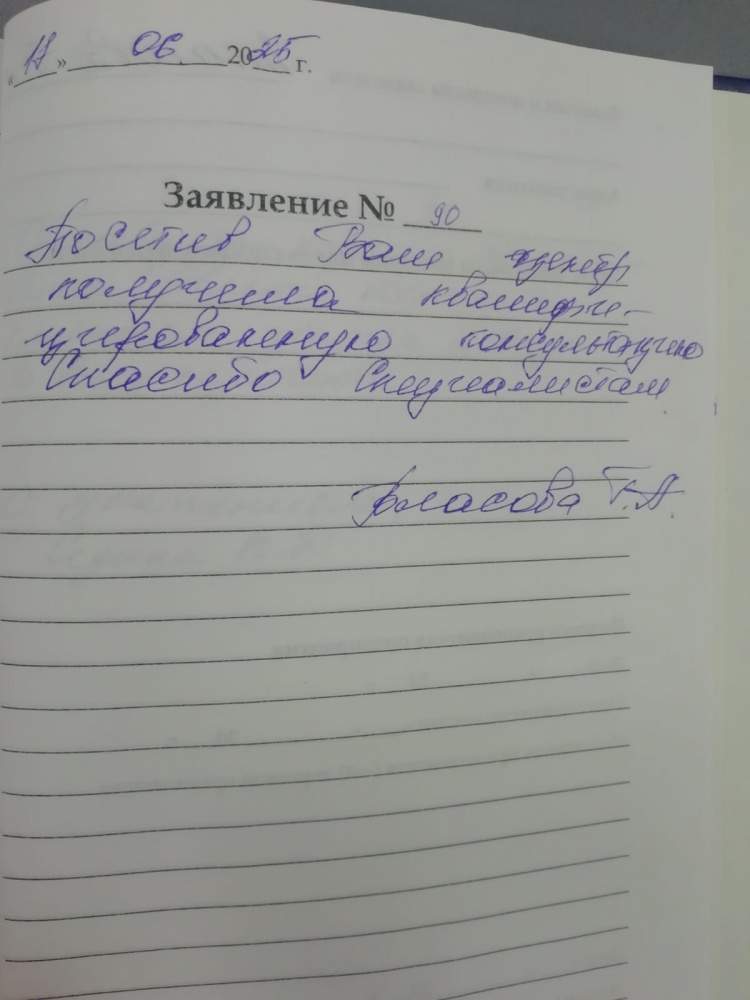 « » 06. 2025 г.
Заявление № 90
Посетив Ваш центр
получила квалифи-
цированную консультацию
Спасибо Специалистам
Власова Т.А.